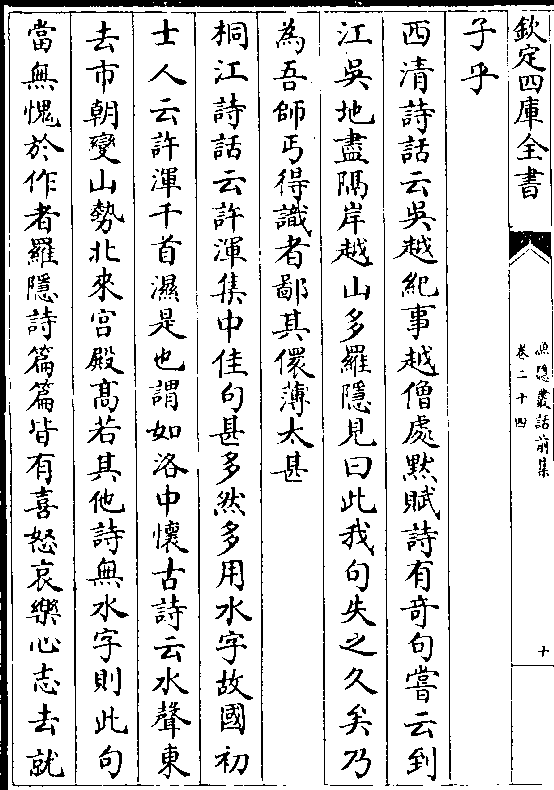 欽定四庫全書
漁隱叢話前集
卷二十四
十
子乎
西清詩話云吳越紀事越僧處黙賦詩有奇句嘗云到
江吳地盡隔岸越山多羅隱見曰此我句失之久矣乃
為吾師丐得識者鄙其儇薄太甚
桐江詩話云許渾集中佳句甚多然多用水字故國初
士人云許渾千首濕是也謂如洛中懷古詩云水聲東
去市朝變山勢北來宫殿髙若其他詩無水字則此句
當無愧於作者羅隱詩篇篇皆有喜怒哀樂心志去就